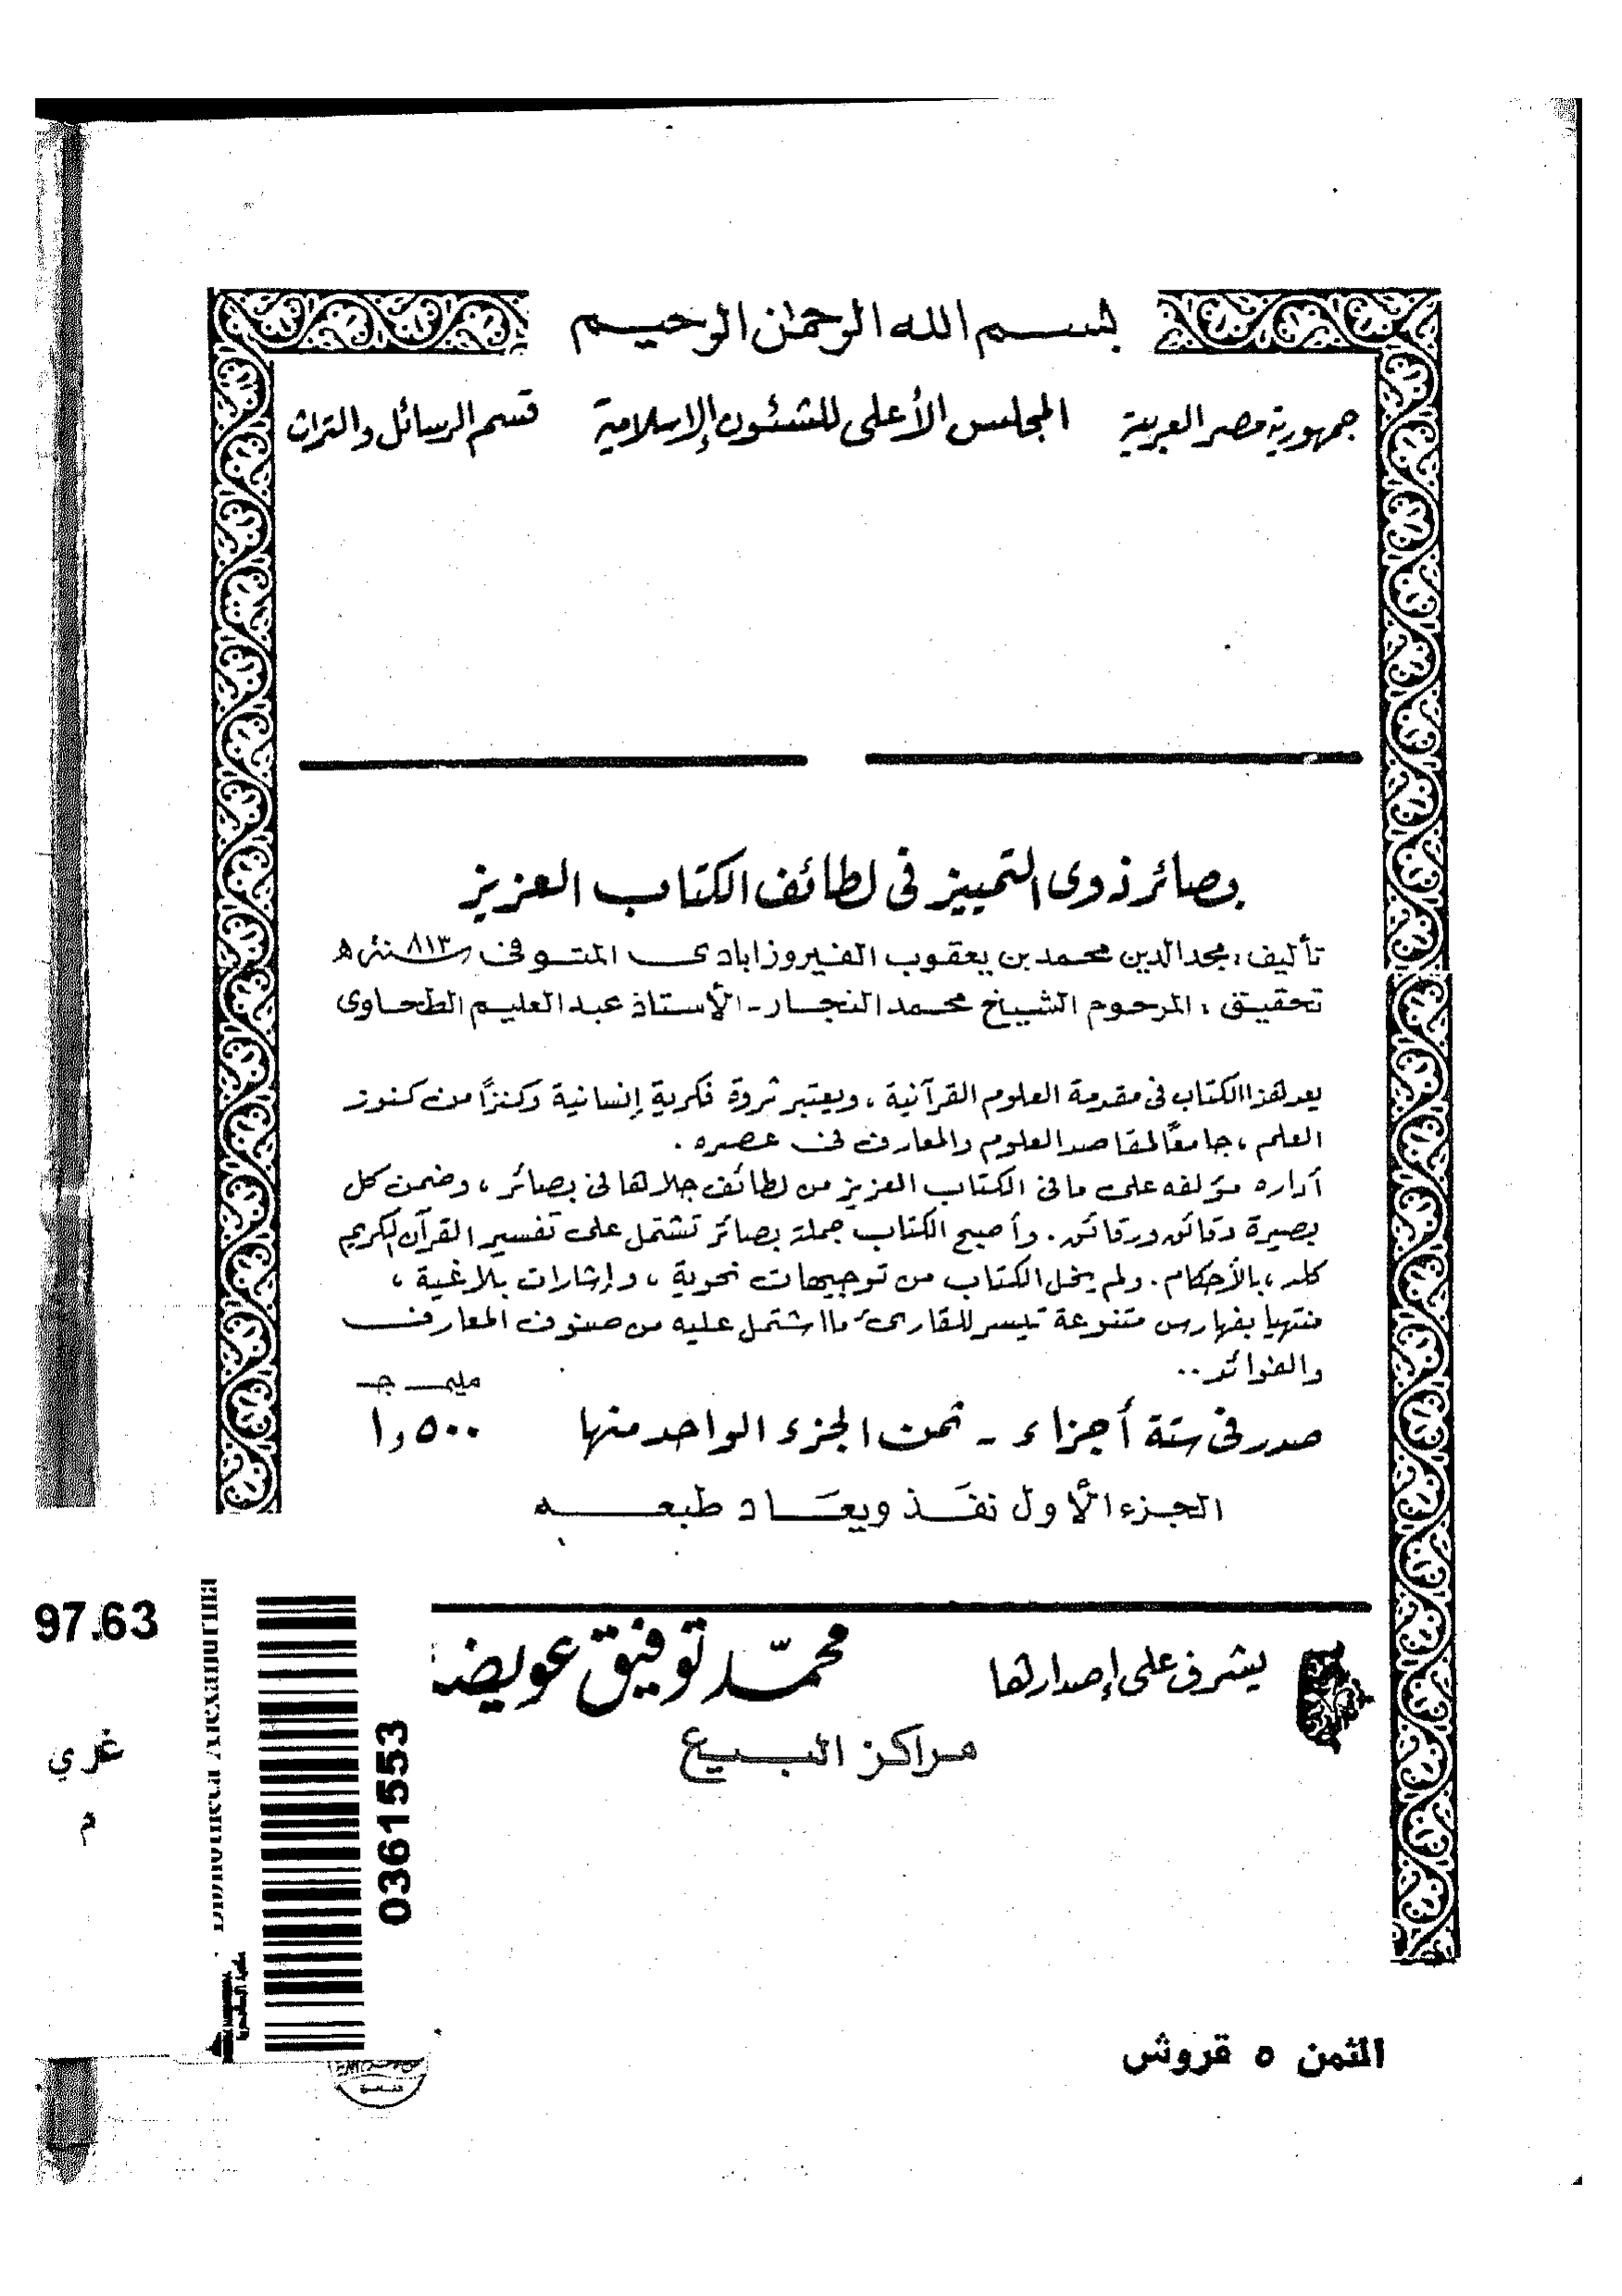 بسم الله الرحمن الرحيم
جمهورية مصر العربية المجلس الأعلى للشئون الإسلامية قسم الرسائل والتراث
بصائر ذوى التمييز فى لطائف الكتاب العزيز
تأليف : مجد الدين محمد بن يعقوب الفيروزابادى المتوفى سنة ٨١٣ هـ
تحقيق : المرحوم الشيخ محمد النجار - الأستاذ عبد العليم الطحاوى
يعد هذا الكتاب فى مقدمة العلوم القرآنية ، ويعتبر ثروة فكرية إنسانية وكنزًا من كنوز
العلم ، جامعًا لمقاصد العلوم والمعارف فى عصره .
أداره مؤلفه على ما فى الكتاب العزيز من لطائف جلاها فى بصائر ، وضمن كل
بصيرة دقائق ورقائق . وأصبح الكتاب جملة بصائر تشتمل على تفسير القرآن الكريم
كله ، بالأحكام . ولم يخل الكتاب من توجيهات نحوية ، وإشارات بلاغية ،
منتهيا بفهارس متنوعة تيسر للقارىء ما اشتمل عليه من صنوف المعارف
والفوائد ..
مليم جـ
صدر فى ستة أجزاء - ثمن الجزء الواحد منها ٥٠٠ر١
الجزء الأول نفَذ ويعَاد طبعه
يشرف على إصدارها محمّد توفيق عويضة
مراكز البيع
97.63
غري
م
0361553
الثمن ٥ قروش